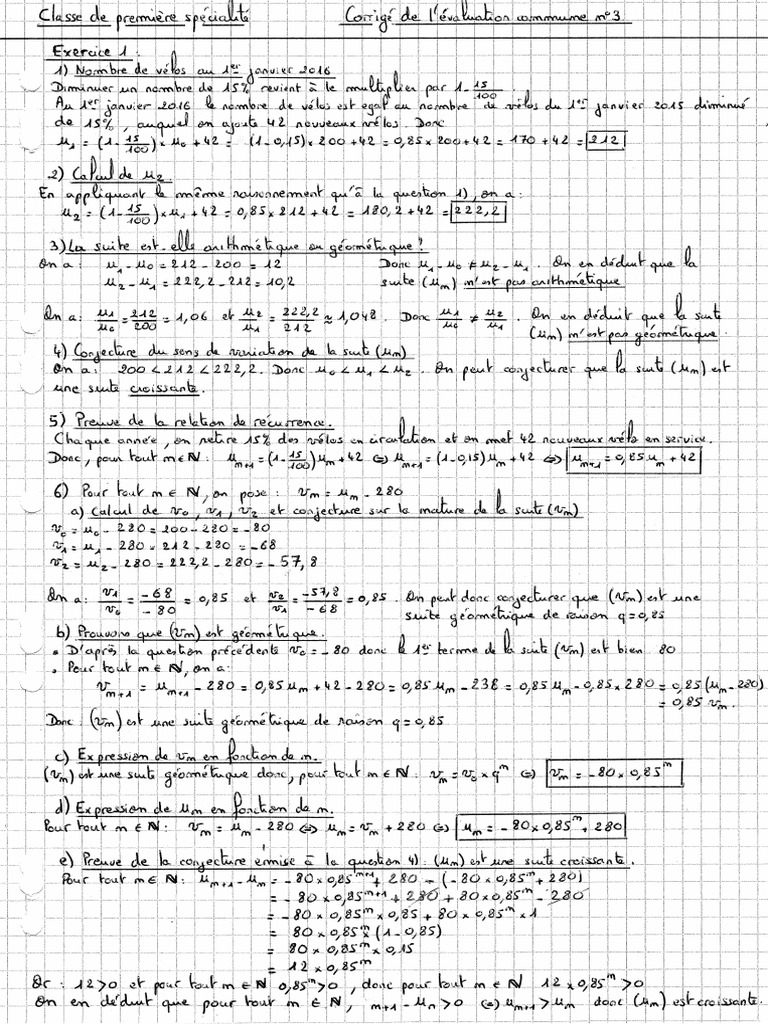 Classe de première spécialité Corrigé de l'évaluation commune n°3
Exercice 1 :
1) Nombre de vélos au 1er janvier 2016
Diminuer un nombre de 15% revient à le multiplier par 1-15/100.
Au 1er janvier 2016 le nombre de vélos est égal au nombre de vélos du 1er janvier 2015 diminué
de 15%, auquel on ajoute 42 nouveaux vélos. Donc
u₁ = (1-15/100)×u₀+42 = (1-0,15)×200+42 = 0,85×200+42 = 170+42 = 212
2) Calcul de u₂.
En appliquant le même raisonnement qu'à la question 1), on a :
u₂ = (1-15/100)×u₁+42 = 0,85×212+42 = 180,2+42 = 222,2
3) La suite est-elle arithmétique ou géométrique ?
On a : u₁-u₀ = 212-200 = 12 Donc u₁-u₀ ≠ u₂-u₁. On en déduit que la
u₂-u₁ = 222,2-212 = 10,2 suite (un) n'est pas arithmétique
On a : u₁/u₀ = 212/200 = 1,06 et u₂/u₁ = 222,2/212 ≈ 1,048. Donc u₁/u₀ ≠ u₂/u₁. On en déduit que la suite
(un) n'est pas géométrique.
4) Conjecture du sens de variation de la suite (un)
On a : 200 < 212 < 222,2. Donc u₀ < u₁ < u₂. On peut conjecturer que la suite (un) est
une suite croissante.
5) Preuve de la relation de récurrence.
Chaque année, on retire 15% des vélos en circulation et on met 42 nouveaux vélo en service.
Donc, pour tout n ∈ ℕ : uₙ₊₁ = (1-15/100)uₙ+42 ⇔ uₙ₊₁ = (1-0,15)uₙ+42 ⇔ uₙ₊₁ = 0,85uₙ+42
6) Pour tout n ∈ ℕ, on pose : vₙ = uₙ-280
a) Calcul de v₀, v₁, v₂ et conjecture sur la nature de la suite (vₙ)
v₀ = u₀-280 = 200-280 = -80
v₁ = u₁-280 = 212-280 = -68
v₂ = u₂-280 = 222,2-280 = -57,8
On a : v₁/v₀ = -68/-80 = 0,85 et v₂/v₁ = -57,8/-68 = 0,85. On peut donc conjecturer que (vₙ) est une
suite géométrique de raison q = 0,85
b) Prouvons que (vₙ) est géométrique.
• D'après la question précédente v₀ = -80 donc le 1er terme de la suite (vₙ) est bien 80
• Pour tout n ∈ ℕ, on a :
vₙ₊₁ = uₙ₊₁-280 = 0,85uₙ+42-280 = 0,85uₙ-238 = 0,85uₙ-0,85×280 = 0,85(uₙ-280)
= 0,85vₙ.
Donc : (vₙ) est une suite géométrique de raison q = 0,85
c) Expression de vₙ en fonction de n.
(vₙ) est une suite géométrique donc, pour tout n ∈ ℕ : vₙ = v₀×qⁿ ⇔ vₙ = -80×0,85ⁿ
d) Expression de uₙ en fonction de n.
Pour tout n ∈ ℕ : vₙ = uₙ-280 ⇔ uₙ = vₙ+280 ⇔ uₙ = -80×0,85ⁿ+280
e) Preuve de la conjecture émise à la question 4) : (uₙ) est une suite croissante.
Pour tout n ∈ ℕ : uₙ₊₁-uₙ = -80×0,85ⁿ⁺¹+280-(-80×0,85ⁿ+280)
= -80×0,85ⁿ⁺¹+280+80×0,85ⁿ-280
= -80×0,85ⁿ×0,85+80×0,85ⁿ×1
= 80×0,85ⁿ×(1-0,85)
= 80×0,85ⁿ×0,15
= 12×0,85ⁿ
Or : 12>0 et pour tout n ∈ ℕ 0,85ⁿ>0, donc pour tout n ∈ ℕ 12×0,85ⁿ>0
On en déduit que pour tout n ∈ ℕ, ₙ₊₁-uₙ>0 ⇔ uₙ₊₁>uₙ donc (uₙ) est croissante.